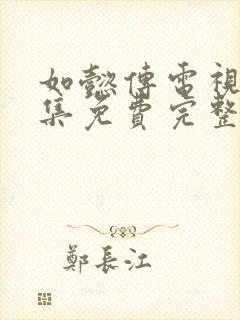 如懿傳電視
集免費完整
鄭長江